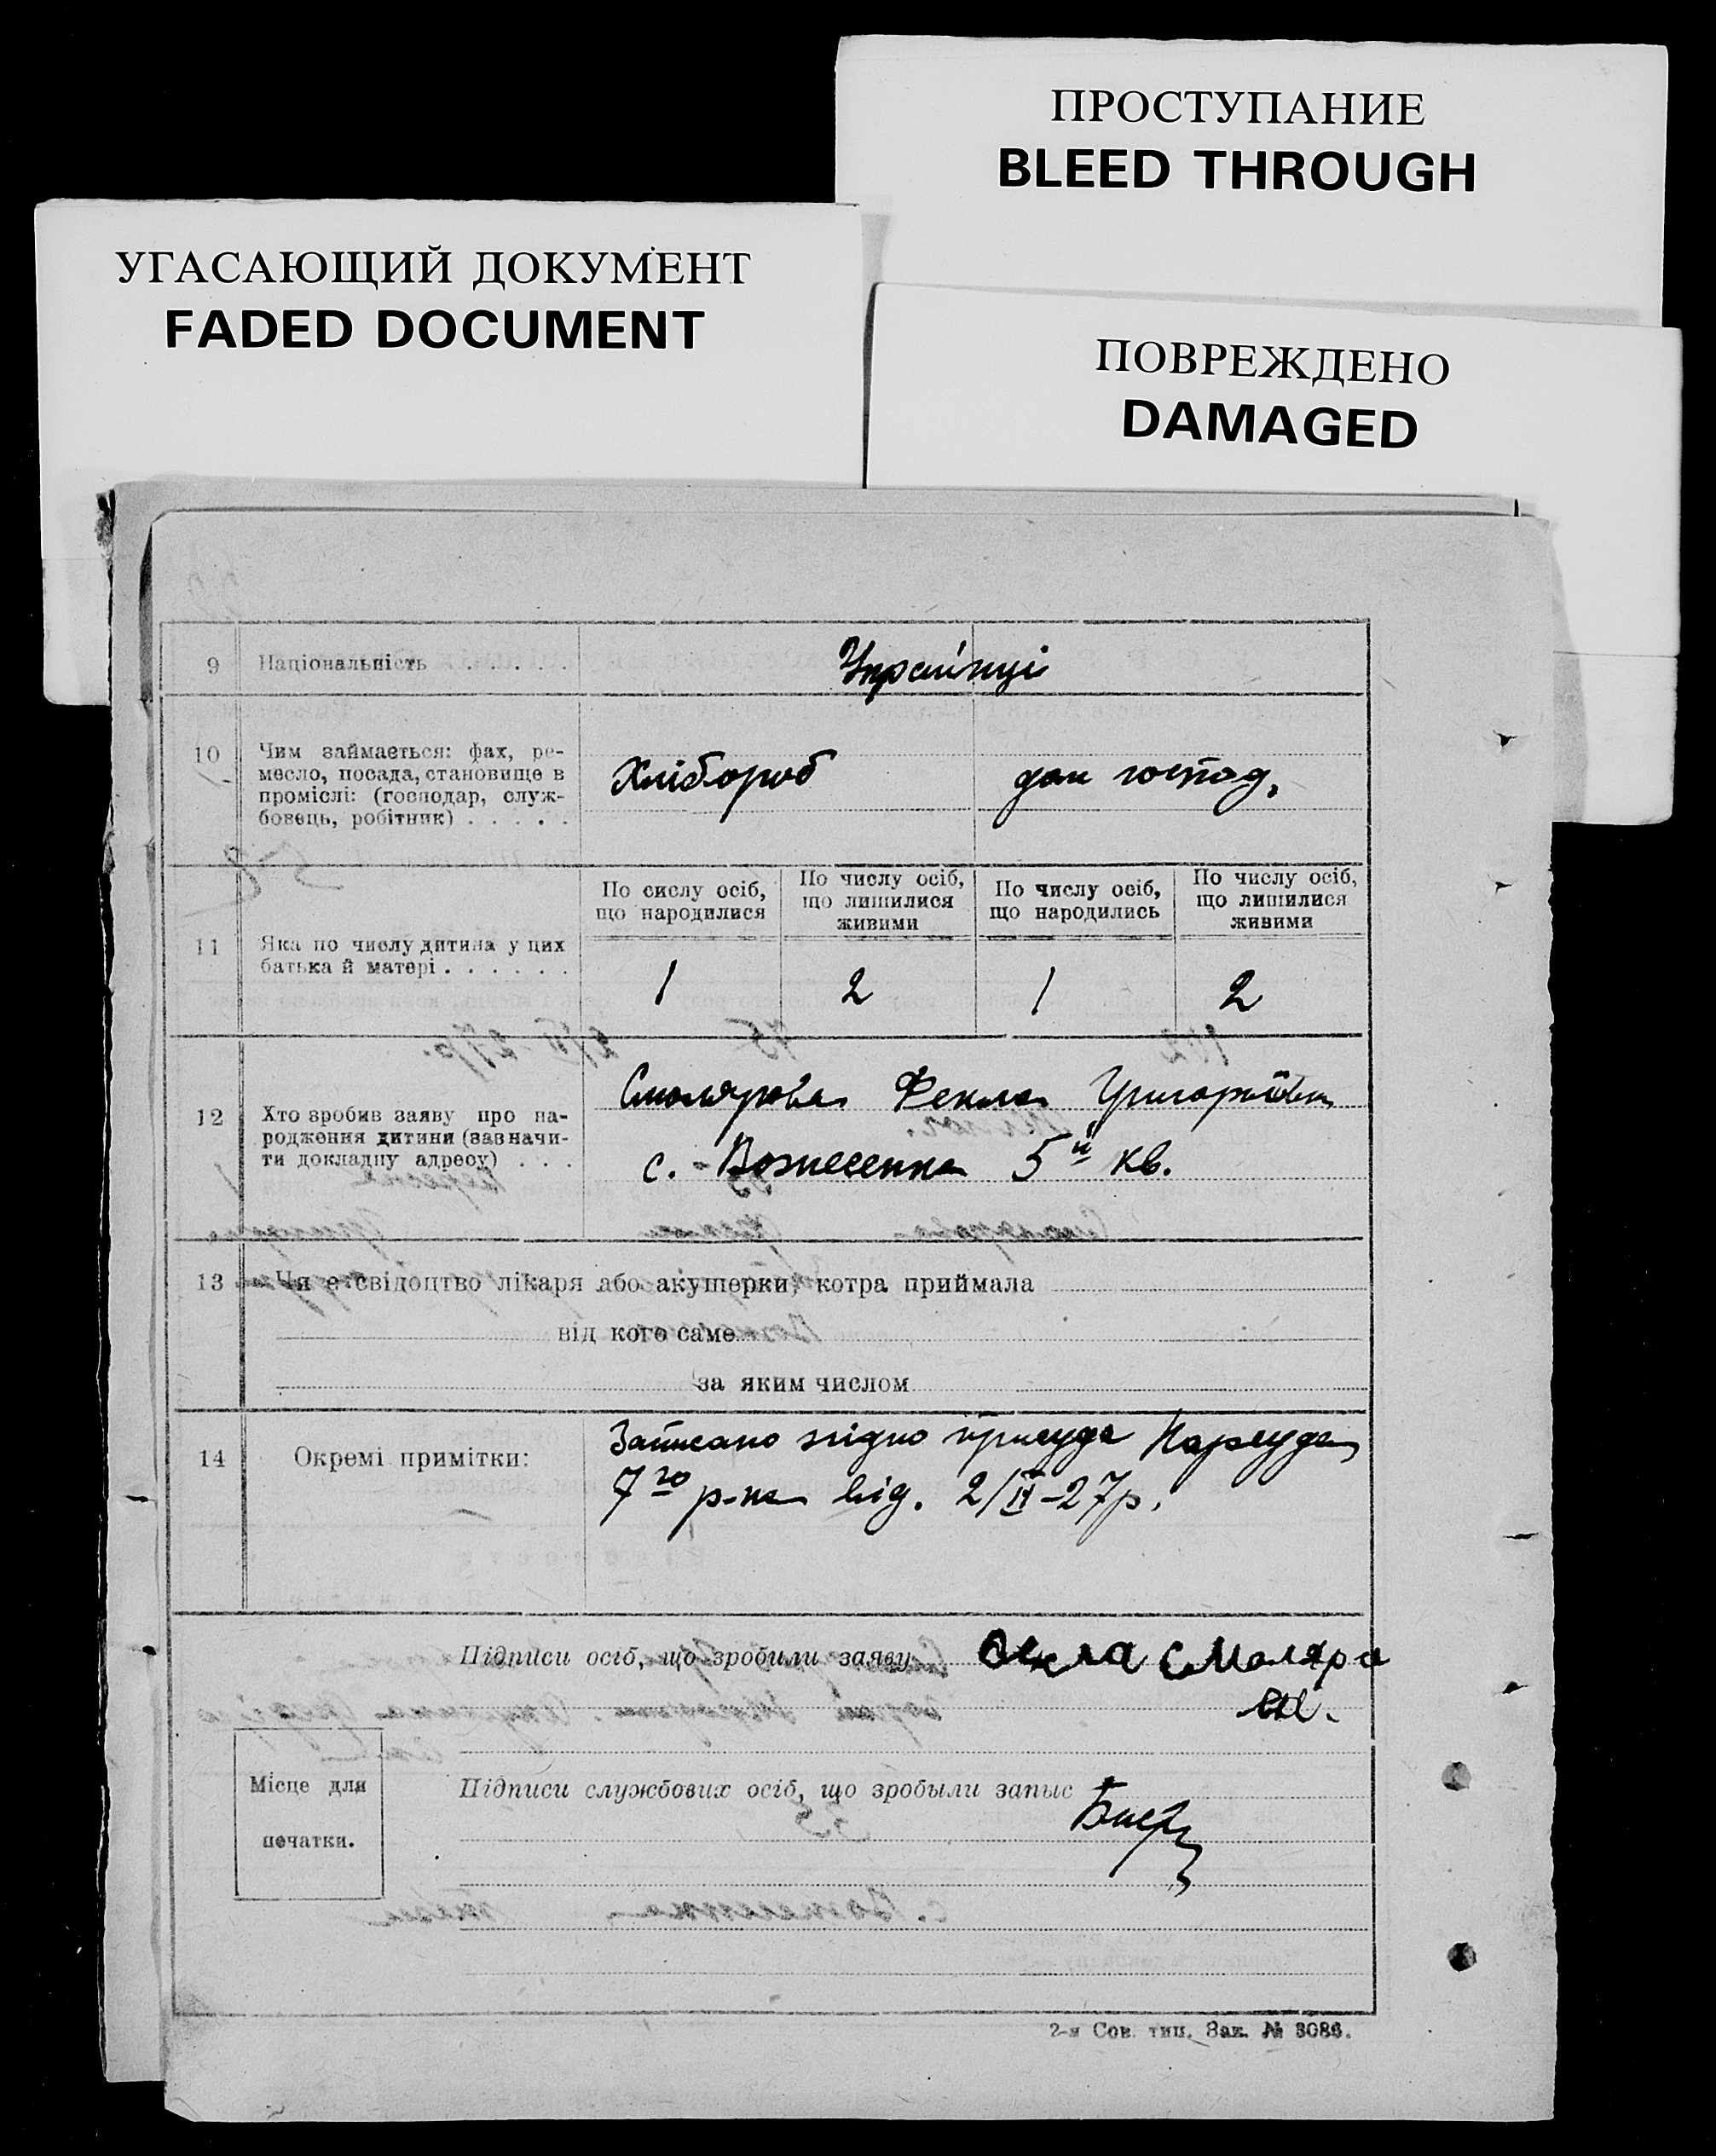 ПРОСТУПАНИЕ
BLEED THROUGH
УГАСАЮЩИЙ ДОКУМЕНТ
FADED DOCUMENT
ПОВРЕЖДЕНО
DAMAGED
9 Національність . . . . . . Українці
10 Чим займається: фах, ре-
месло, посада, становище в
проміслі: (господар, служ-
бовець, робітник) . . . . .
Хлібороб дом господ.
По сислу осіб, що народилися
По числу осіб, що лишилися живими
По числу осіб, що народились
По числу осіб, що лишилися живими
11 Яка по числу дитина у цих
батька й матері . . . . . .
1 2 1 2
12 Хто зробив заяву про на-
родження дитини (зазначи-
ти докладну адресу) . . .
Смолярова Фекла Григорівна
с. Вознесенка 5й кв.
13 Чи є свідоцтво лікаря або акушерки, котра приймала
від кого саме
за яким числом
14 Окремі примітки:
Записано згідно присуда Нарсуда
7го р-на від. 2/IV-27р.
Підписи осіб, що зробили заяву Фекла Смоляро
ва.
Місце для
печатки.
Підписи службових осіб, що зробыли запыс
2-я Сов. тип. Зак. № 3086.